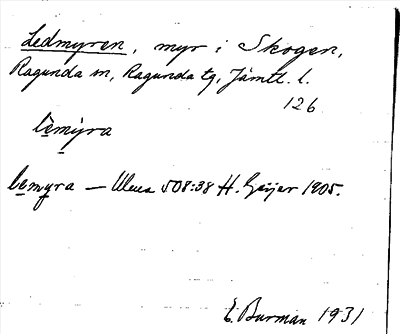 Ledmyren, myr i Skogen,
Ragunda sn, Ragunda tg, Jämtl. l.
126
lèmýra
lemyra — Uleus 508:38 H. Geijer 1905.
E. Burman 1931